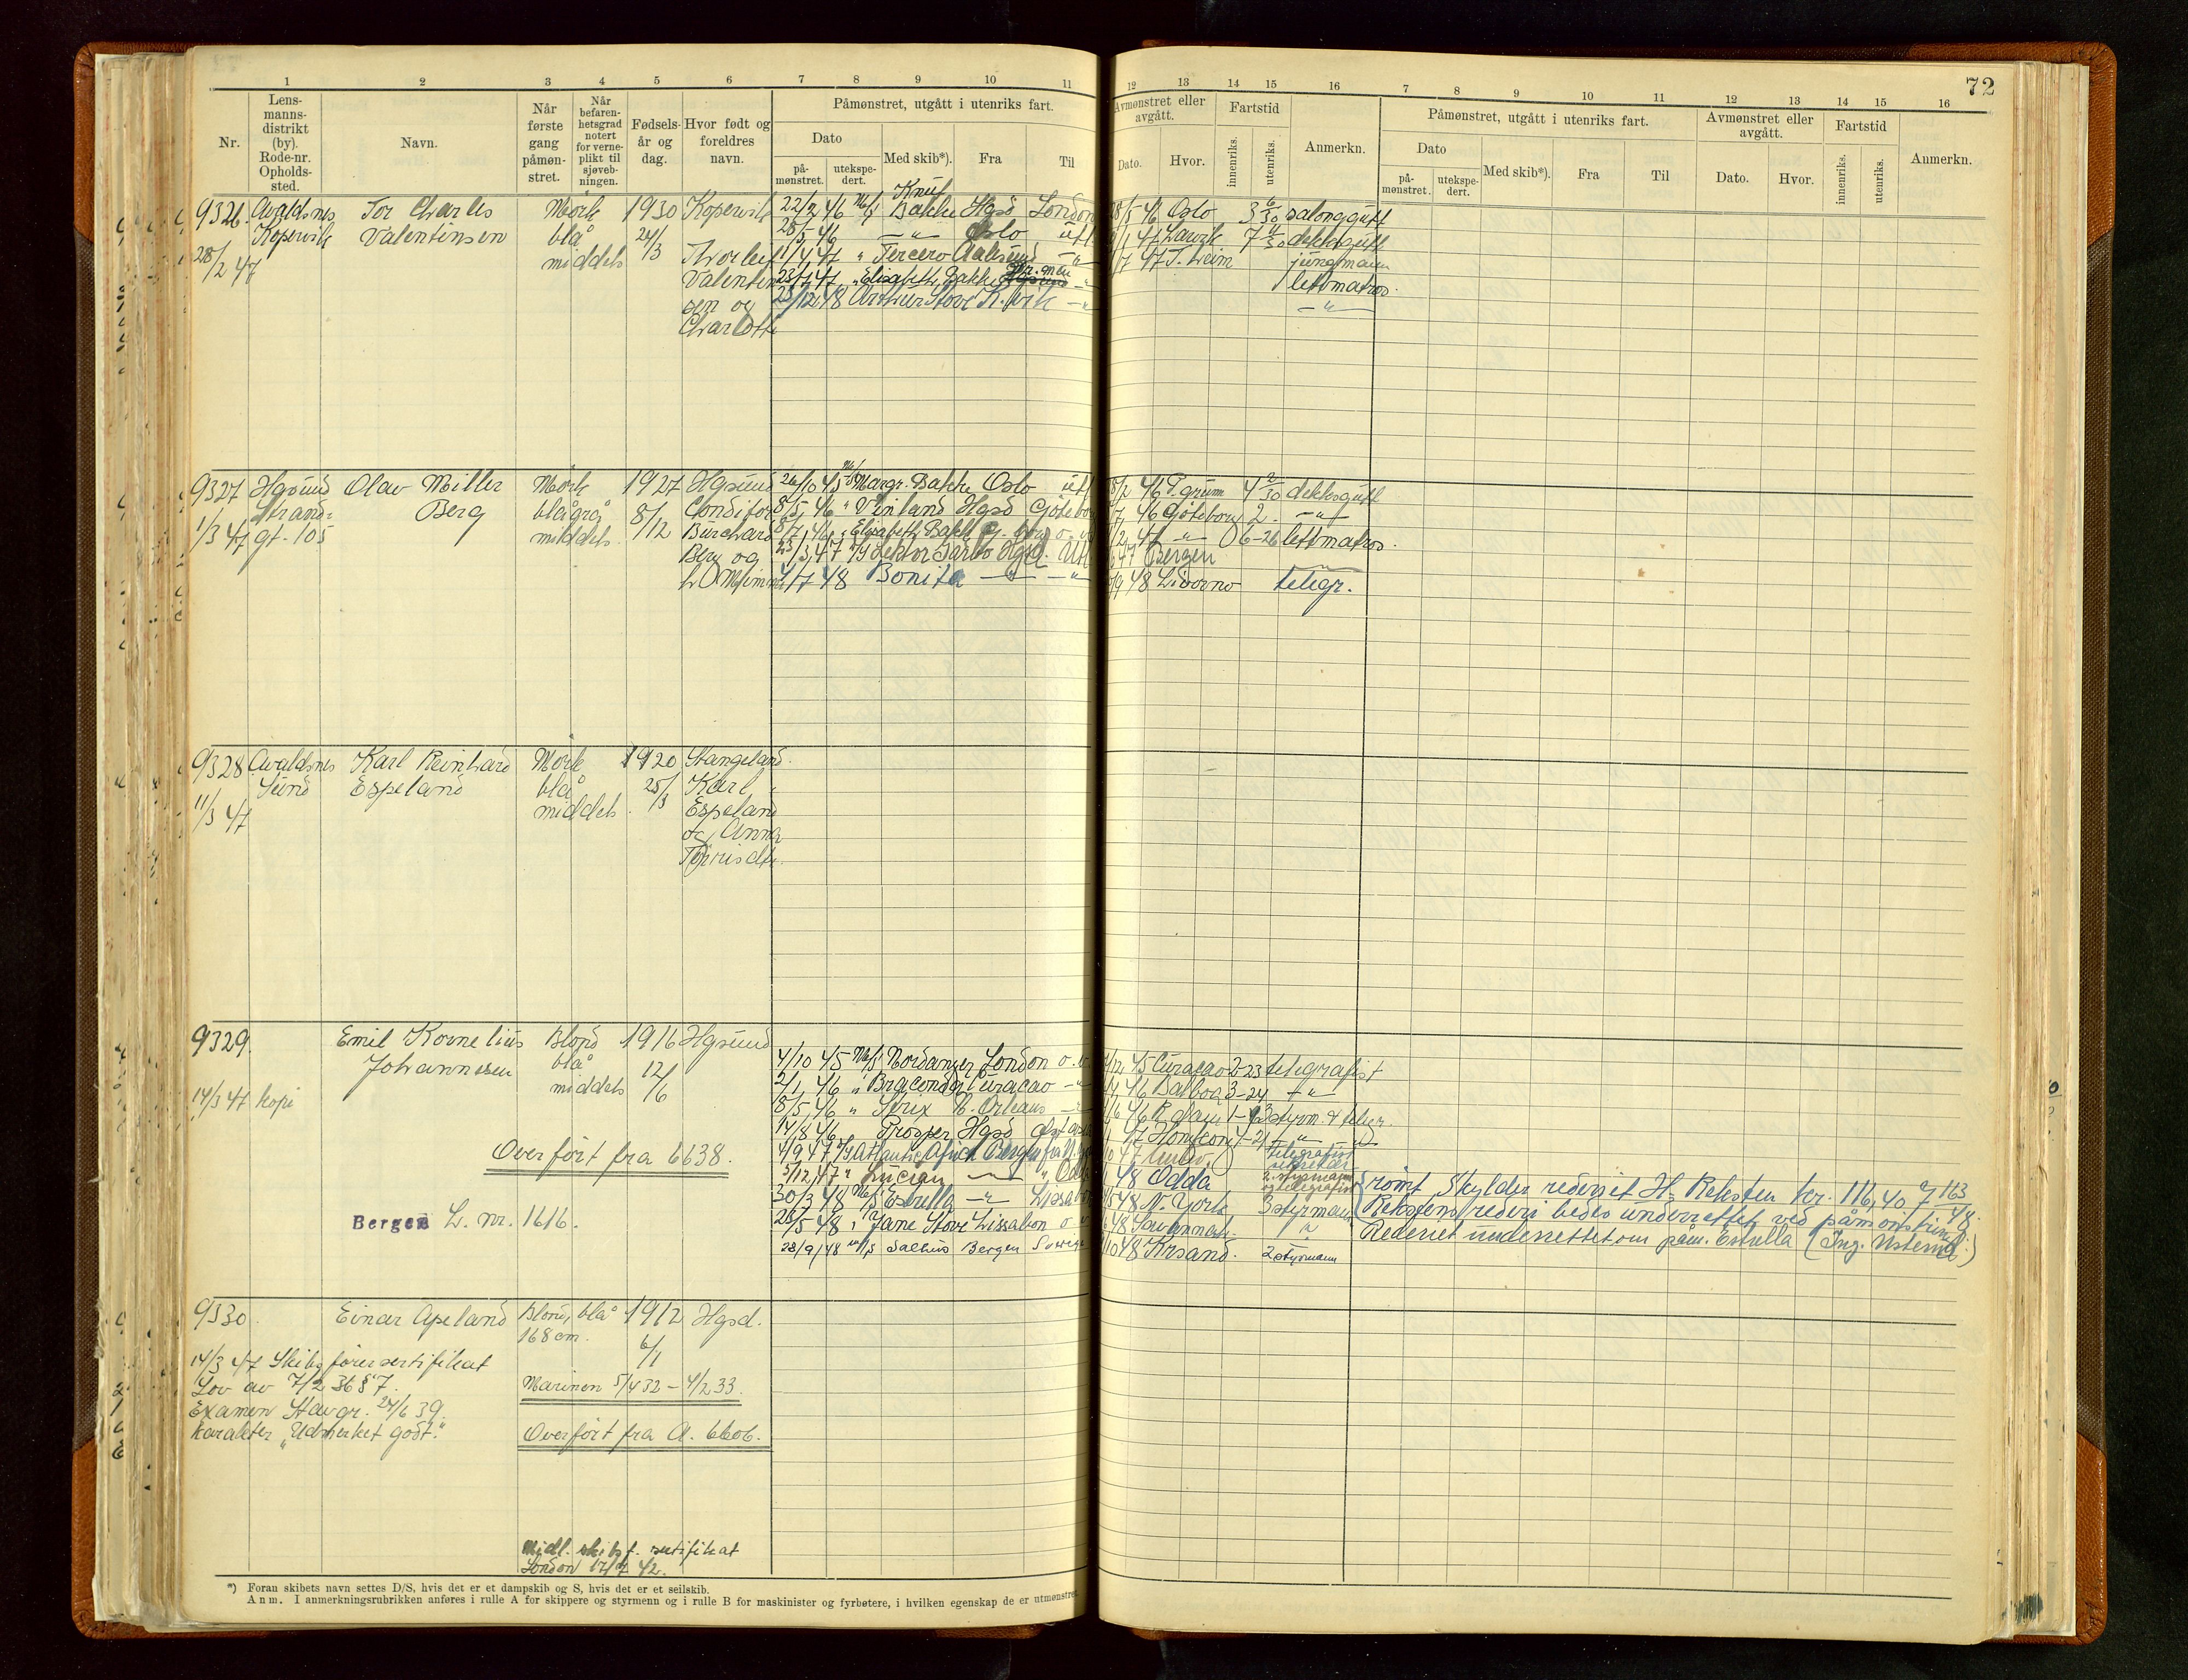 72
1 2 3 4 5 6 7 8 9 10 11
Nr.
Lens-
manns-
distrikt
(by).
Rode-nr.
Opholds-
sted.
Navn.
Når
første
gang
påmøn-
stret.
Når
befaren-
hetsgrad
notert
for verne-
plikt til
sjøveb-
ningen.
Fødsels-
år og
dag.
Hvor født og
foreldres
navn.
Påmønstret, utgått i utenriks fart.
Dato
på-
mønstret.
utekspe-
dert.
Med skib*).
Fra
Til
12 13 14 15 16 7 8 9 10 11 12 13 14 15 16
Avmønstret eller
avgått.
Dato.
Hvor.
Fartstid
innenriks.
utenriks.
Anmerkn.
Påmønstret, utgått i utenriks fart.
Dato
på-
mønstret.
utekspe-
dert.
Med skib*).
Fra
Til
Avmønstret eller
avgått.
Dato.
Hvor.
Fartstid
innenriks.
utenriks.
Anmerkn.
9326. Avaldsnes Tor Charles Mørk 1930 Kopervik 22/2 46 M/S Knut Bakke Hgsd London
Kopervik Valentinsen blå 24/3 28/5 46 -"- Oslo utl.
28/2 47 middels Thorleif 11/4 47 " Tercero Aalesund -"-
Valentin 23/7 47 " Elisabeth Bakke -"-
sen og 28/12 48 Arthur Stove K.vik -"-
Charlotte
28/5 46 Oslo 3 6/30 salonggutt
47 Larvik 7 dekksgutt
47 T.heim jungmann
lettmatros.
-"-
9327 Hgsund Olav Miller Mørk 1927 Hgsund 26/10 45 M/S Margr. Bakke Oslo utl
Strand- Berg blågrå 8/12 Conditor 8/5 46 " Vinland Hgsd Göteborg
1/3 47 gt. 105 middels. Burchard 8/7 46 " Elisabeth Bakke
Berg og 23/3 47 Hgsd. Utl
4/7 48 Bonita -"- -"-
8/2 46 T.grum 4 2/30 dekksgutt
46 Göteborg 2. -"-
47 -"- 6-26 lettmatros.
47 Bergen
48 Livorno telegr.
9328 Avaldsnes Karl Reinhard Mørk 1920 Stangeland.
Sund Espeland blå 25/3 Karl
11/3 47 middels. Espeland
og Anna
9329. Emil Kornelius Blond 1916 Hgsund
Johannesen blå 12/6
14/3 47 kopi middels
Overført fra 6638.
Bergen L. nr. 1616.
4/10 45 M/S Nordanger London o.v.
2/1 46 " Braconda Curacao -"-
8/5 46 " Strix N. Orleans -"-
14/8 46 Prosper Hgsd
4/9 47 Bergen
5/12 47 " Lucian -"-
30/3 48 M/S Estrella -"- Lissabon
26/5 48 " Jane Stove Lissabon o.
28/9 48 M/S Salhus Bergen Sverige
45 Curacao 2-23 telegrafist
46 Balboa 3-24 -"-
46 R.dam styrm. & telegr.
47 4-21 -"-
47 telegrafist
48 Odda 2. styrmann
og telegrafist
48 N. York 3 styrmann
48 Savannah "
48 Krsand. 2 styrmann
rømt, Skylder rederiet H. Reksten kr. 116,40.
Rekstens rederi bedes underrettet ved påmønstring
Rederiet underrettet om påm. Estrella (Ing. Ustend.)
9330. Einar Apeland Blond, blå 1912 Hgsd.
168 cm. 6/1
14/3 47 Skibsførersertifikat
Lov av 7/2 36 § 7. Marinen 5/4 32 - 4/2 33.
Examen Stavgr. 24/6 39.
karakter "Udmerket godt." Overført fra A. 6606.
Midl. skibsf. sertifikat
London 17/7 42.
*) Foran skibets navn settes D/S, hvis det er et dampskib og S, hvis det er et seilskib.
Anm. I anmerkningsrubrikken anføres i rulle A for skippere og styrmenn og i rulle B for maskinister og fyrbøtere, i hvilken egenskap de er utmønstret.